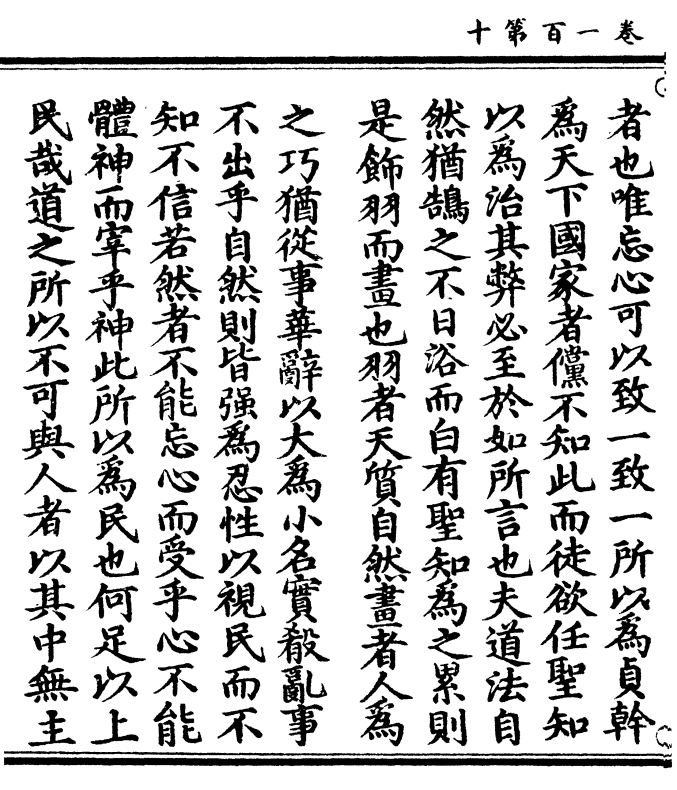 卷一百第十
者也唯忘心可以致一致一所以爲貞幹
爲天下國家者儻不知此而徒欲任聖知
以爲治其弊必至於如所言也夫道法自
然猶鵠之不日浴而白有聖知爲之累則
是飾羽而畫也羽者天質自然畫者人爲
之巧猶從事華辭以大爲小名實殽亂事
不出乎自然則皆强爲忍性以視民而不
知不信若然者不能忘心而受乎心不能
體神而宰乎神此所以爲民也何足以上
民哉道之所以不可與人者以其中無主